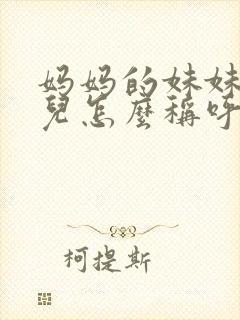 妈妈的妹妹
兒怎麽稱呼
柯提斯